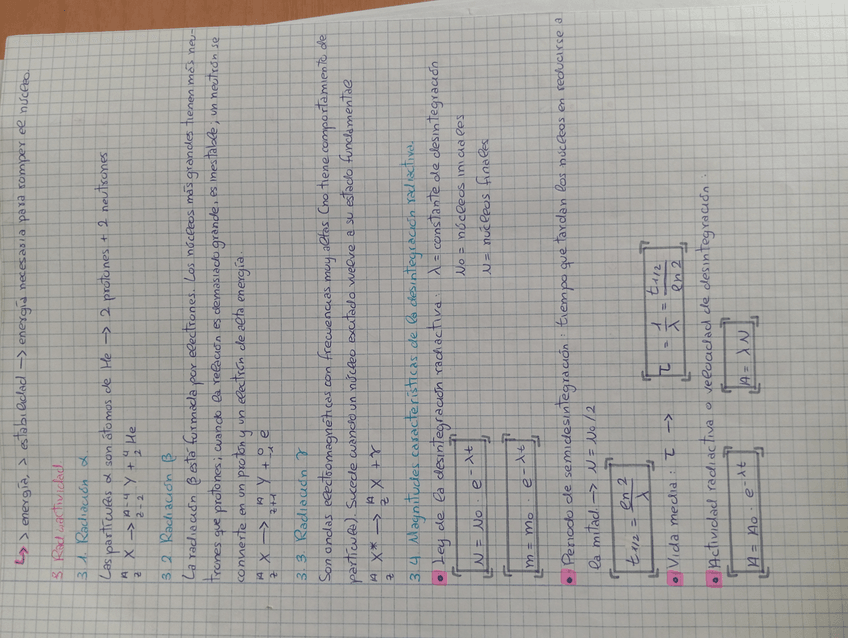 ↳ > energía, > estabilidad → energía necesaria para romper el núcleo.
3. Radioactividad
3.1. Radiación α
Las partículas α son átomos de He → 2 protones + 2 neutrones
ᴬ_Z X → ᴬ⁻⁴_Z-2 Y + ⁴_2 He
3.2 Radiación β
La radiación β está formada por electrones. Los núcleos más grandes tienen más neu-
trones que protones; cuando la relación es demasiado grande, es inestable; un neutrón se
convierte en un protón y un electrón de alta energía
ᴬ_Z X → ᴬ_Z+1 Y + ⁰_-1 e
3.3 Radiación γ
Son ondas electromagnéticas con frecuencias muy altas (no tiene comportamiento de
partícula). Sucede cuando un núcleo excitado vuelve a su estado fundamental
ᴬ_Z X* → ᴬ_Z X + γ
3.4 Magnitudes características de la desintegración radiactiva.
• Ley de la desintegración radiactiva: λ = constante de desintegración
N₀ = núcleos iniciales
N = núcleos finales
[N = N₀ · e^-λt]
[m = m₀ · e^-λt]
• Periodo de semidesintegración: tiempo que tardan los núcleos en reducirse a
la mitad → N = N₀/2
[t₁/₂ = ln 2 / λ]
• Vida media: τ → [τ = 1/λ = t₁/₂ / ln 2]
• Actividad radiactiva o velocidad de desintegración:
[A = A₀ · e^-λt] [A = λN]